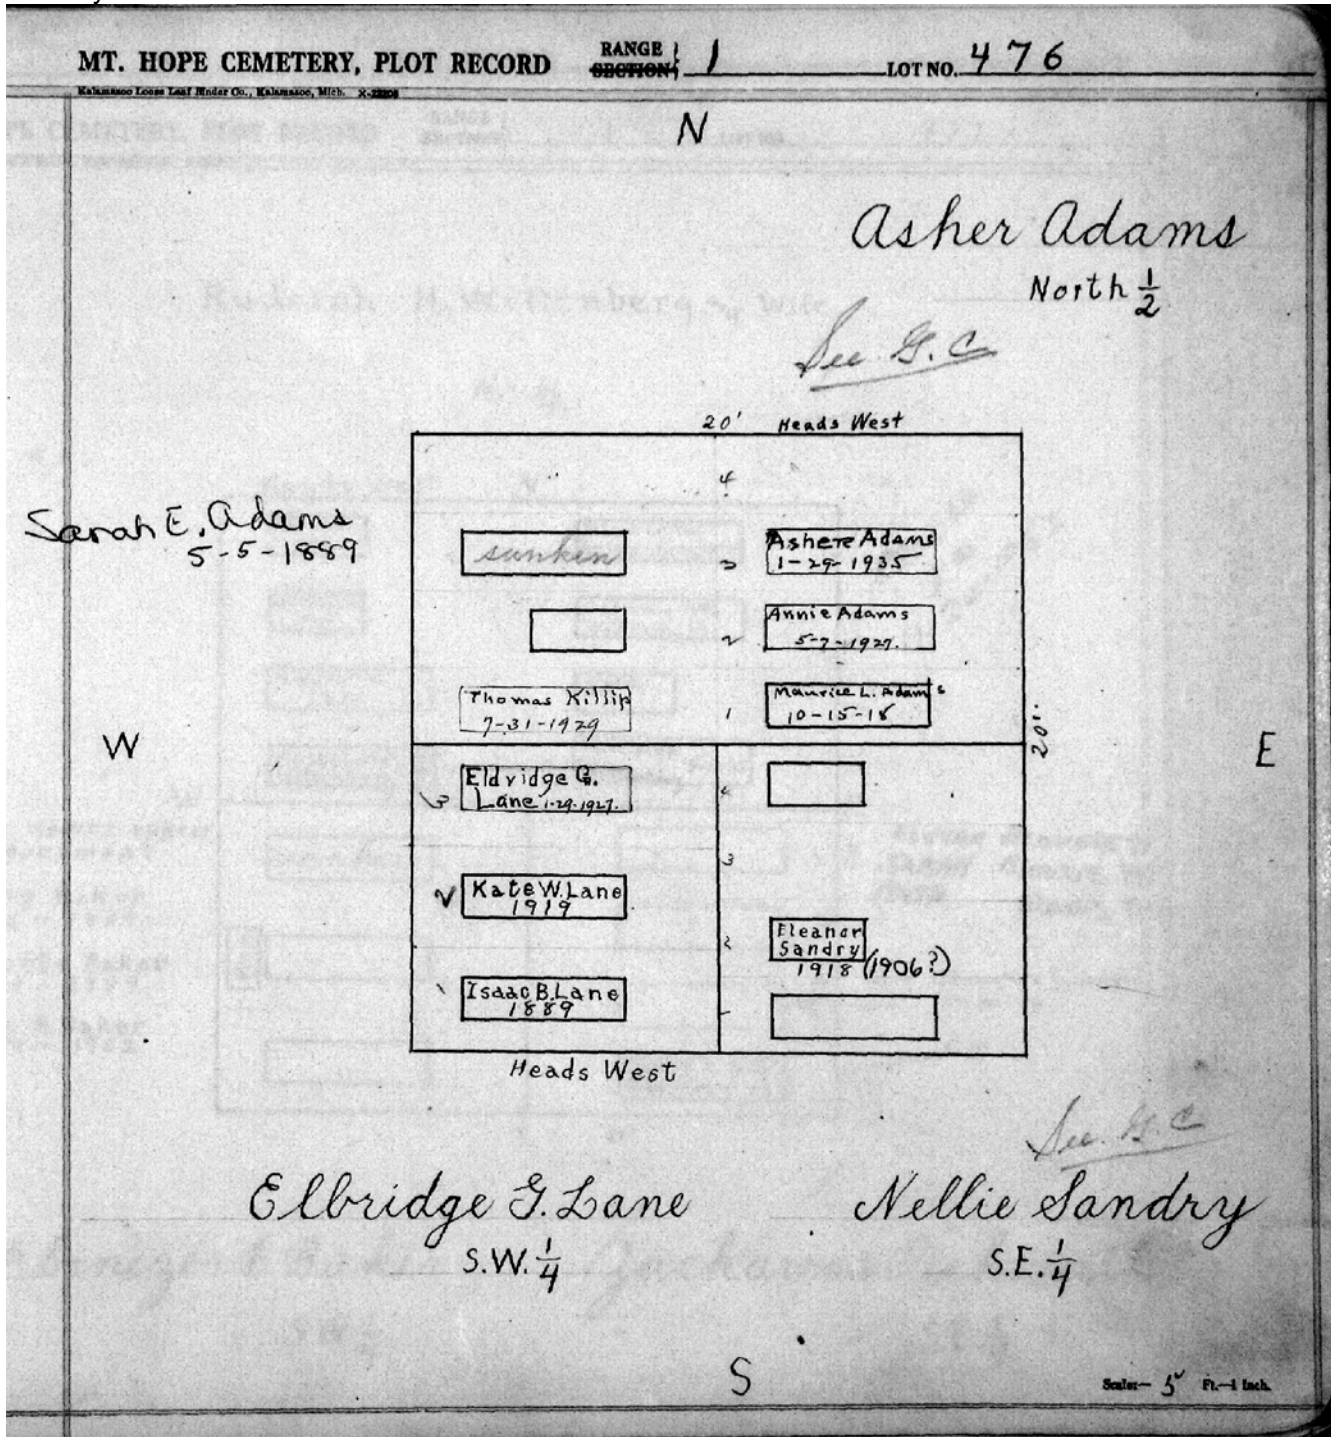 MT. HOPE CEMETERY, PLOT RECORD RANGE SECTION 1 LOT NO. 476
Kalamazoo Loose Leaf Binder Co., Kalamazoo, Mich.
N
Asher Adams
North 1/2
See G. C
20' Heads West
4
Sarah E. Adams
5-5-1889
sunken
3
Ashere Adams
1-29-1935
2
Annie Adams
5-7-1927.
Thomas Killip
7-31-1929
1
Maurice L. Adams
10-15-18
W
20'
E
3
Eldridge G.
Lane 1-29-1927.
4
3
Kate W. Lane
1919
2
Eleanor
Sandry
1918 (1906?)
Isaac B. Lane
1889
1
Heads West
See G. C
Elbridge G. Lane
S.W. 1/4
Nellie Sandry
S.E. 1/4
S
Scale— 5 Ft.—1 Inch.